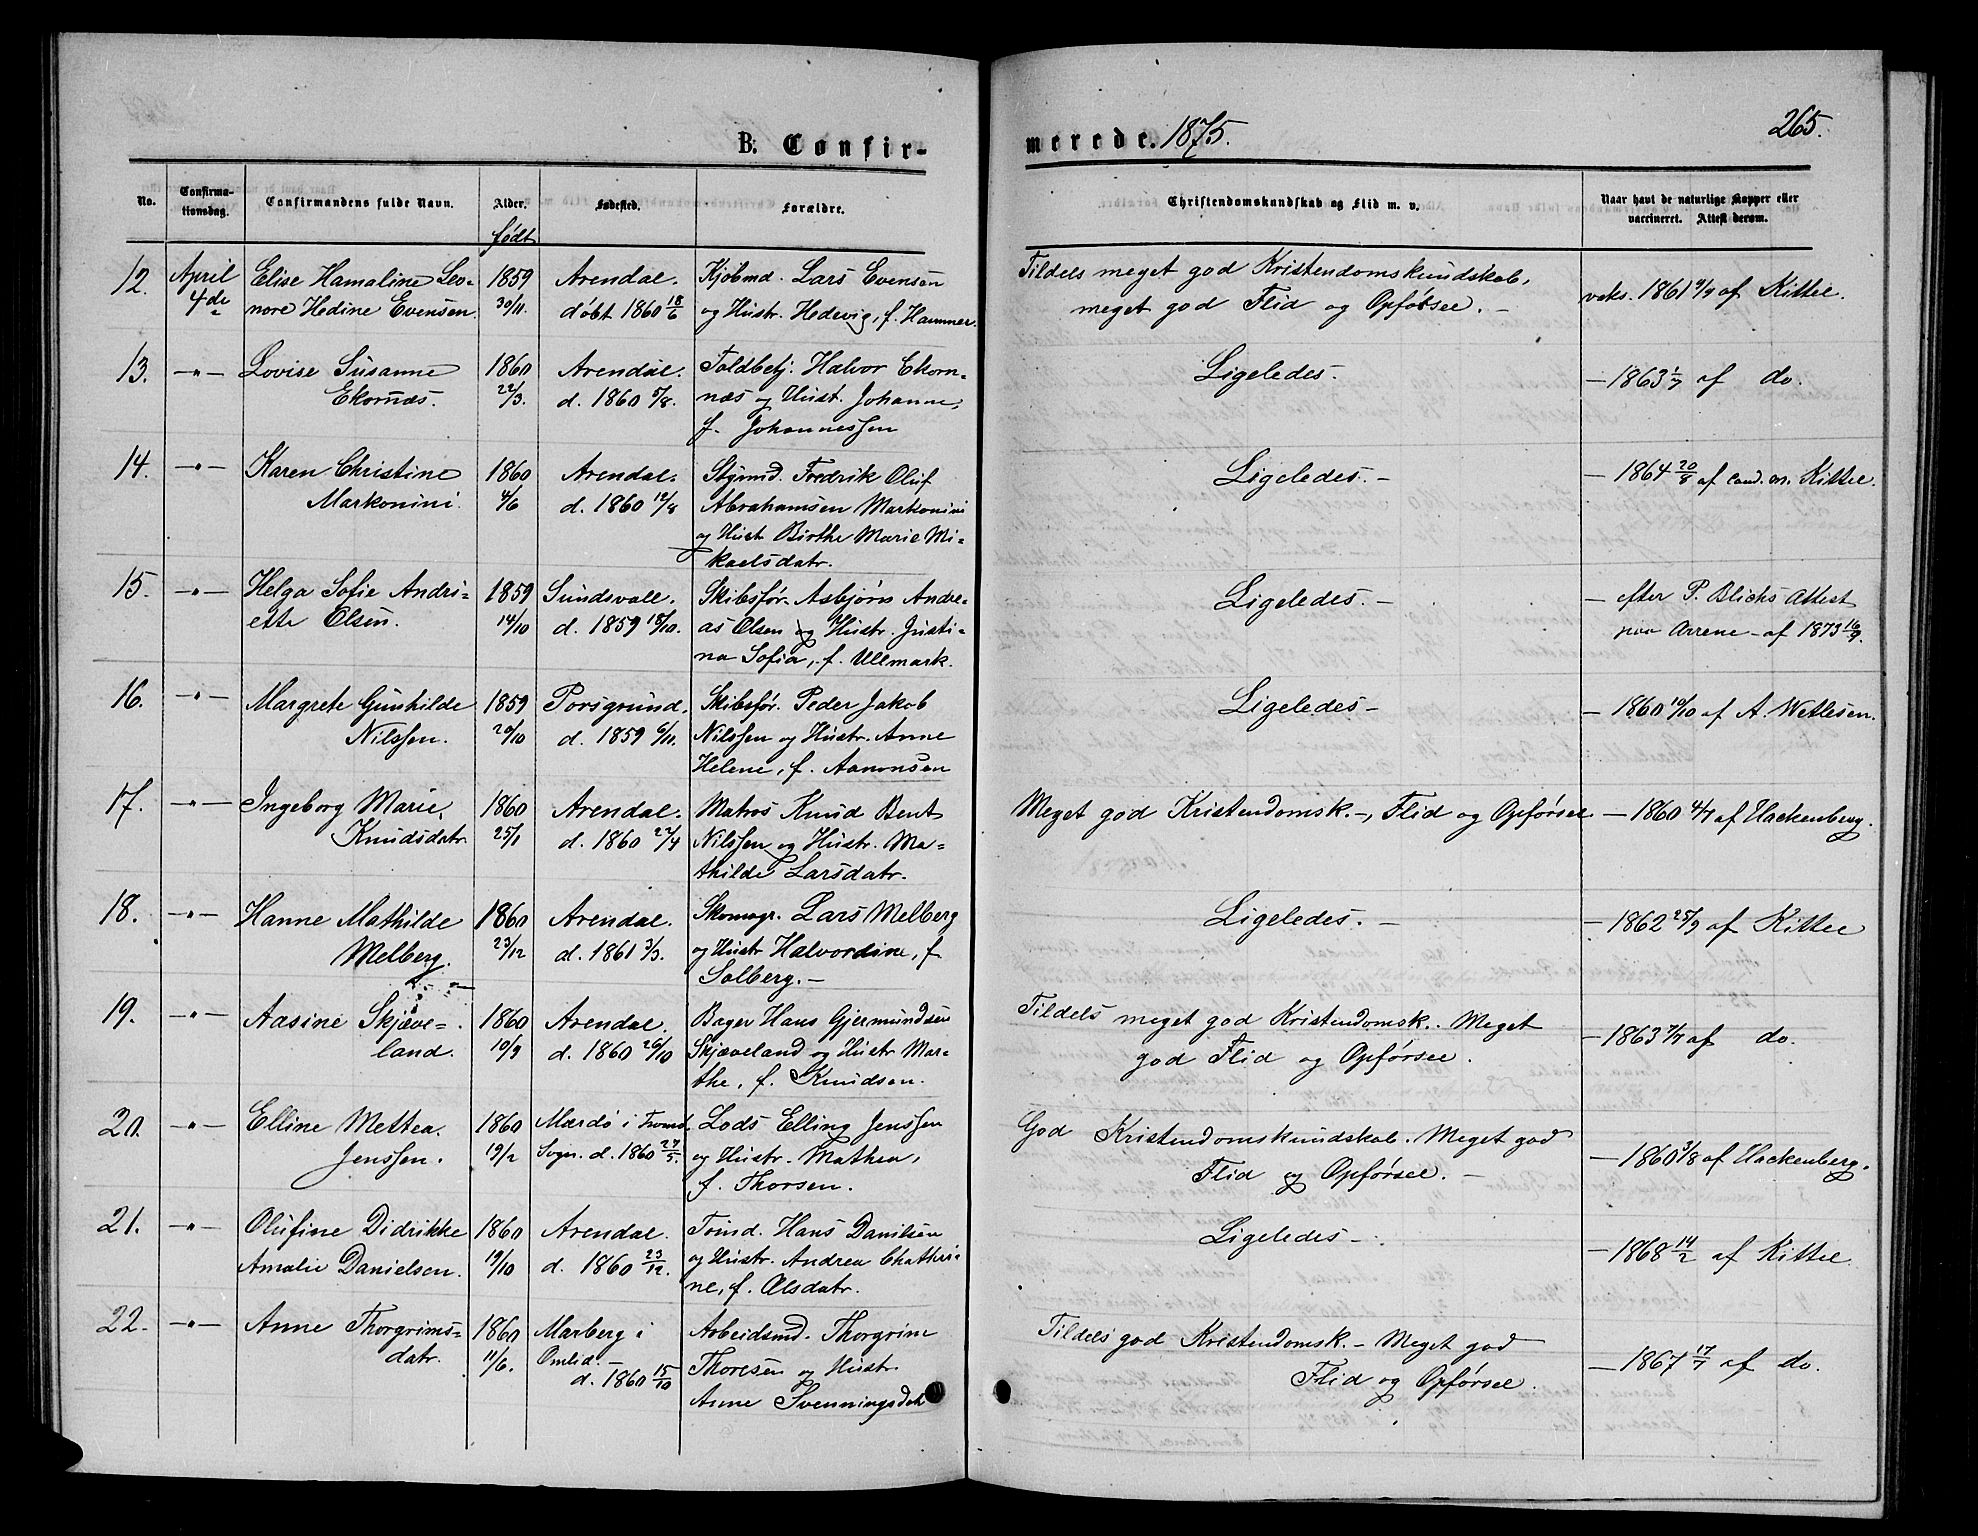 265.
B. Confir-
merede. 1875.
No.
Confirma-
tionsdag.
Confirmandens fulde Navn.
Alder.
født
Fødested.
Forældre.
Christendomskundskab og Flid m. v.
Naar havt de naturlige Kopper eller
vaccineret. Attest derom.
12. April Elise Hamaline Leo- 1859 Arendal. Kjøbmd. Lars Evensen Tildels meget god Kristendomskundskab,
4de nore Hedine Evensen. 30/11. døbt 1860 18/6 og Hustr. Hedevig, f. Hammer. meget god Flid og Opførsel. – vaks. 1861 9/9 af Kittel.
13. –"– Lovise Susanne 1860 Arendal. Toldbetj. Halvor Ekorn- Ligeledes. – 1863 1/7 af do.
Ekornæs. 22/3. d. 1860 5/8. næs og Hust. Johanne,
f. Johannessen
14. –"– Karen Christine 1860 Arendal. Stymd. Fredrik Oluf Ligeledes. – – 1864 20/8 af cand. m. Kittel.
Markonini. 4/6 d. 1860 12/8 Abrahamsen Markonini
og Hust Birthe Marie Mi-
kaelsdatr.
15. –"– Helga Sofie Andri- 1859 Sundsvall. Skibsfør. Asbjørn Andre- Ligeledes. – – efter P. Blichs Attest
ette Olsen. 14/10 d. 1859 18/10. as Olsen og Hustr. Justi- paa Arrene – af 1873 16/9.
na Sofia, f. Ullmark.
16. –"– Margrete Gunhilde 1859 Porsgrund. Skibsfør. Peder Jakob Ligeledes – – 1860 10/10 af A. Wetlesen.
Nilssen. 20/10 d. 1859 6/11. Nilssen og Hustr. Anne
Helene, f. Aanonsen
17. –"– Ingeborg Marie 1860 Arendal. Matros Knud Bent Meget god Kristendomsk. –, Flid og Opførsel – 1860 4/7 af Hackenberg.
Knudsdatr 25/1 d. 1860 22/4 Nilssen og Hustr. Ma-
thilde Larsdatr.
18. –"– Hanne Mathilde 1860 Arendal. Skomagr. Lars Melberg Ligeledes. – – 1862 25/9 af Kittel
Melberg. 23/12 d. 1861 3/3. og Hustr Halvordine, f.
Solberg. –
19. –"– Aasine Skjæve- 1860 Arendal. Bager Hans Gjermundsen Tildels meget god Kristendomsk. Meget – 1863 7/7 af do.
land. 10/9 d. 1860 26/10 Skjæveland og Hustr Mar- god Flid og Opførsel.
the, f. Knudsen.
20. –"– Elline Mettea 1860 Mærdø i Tromø Lods Elling Jenssen God Kristendomskundskab. Meget god
Jenssen. 19/2 Sogn. d. 1860 27/5. og Hustr. Mathea, Flid og Opførsel. – – 1860 3/8 af Hackenberg.
f. Thorsen.
21. –"– Olufine Didrikke 1860 Arendal. Tømd. Hans Danilsen Ligeledes – – 1868 14/2 af Kittel.
Amalie Danielsen. 19/10 d. 1860 23/12. og Hustr. Andrea Chathri-
ne, f. Olsdatr.
22. –"– Anne Thorgrims- 1860 Marberg i Arbeidsmd. Thorgrim Tildels god Kristendomsk. – Meget god – 1867 17/7 af do.
datr. 11/6. Omlid. – Thoresen og Hustr. Flid og Opførsel.
d. 1860 15/10 Anne Svenningsdatr